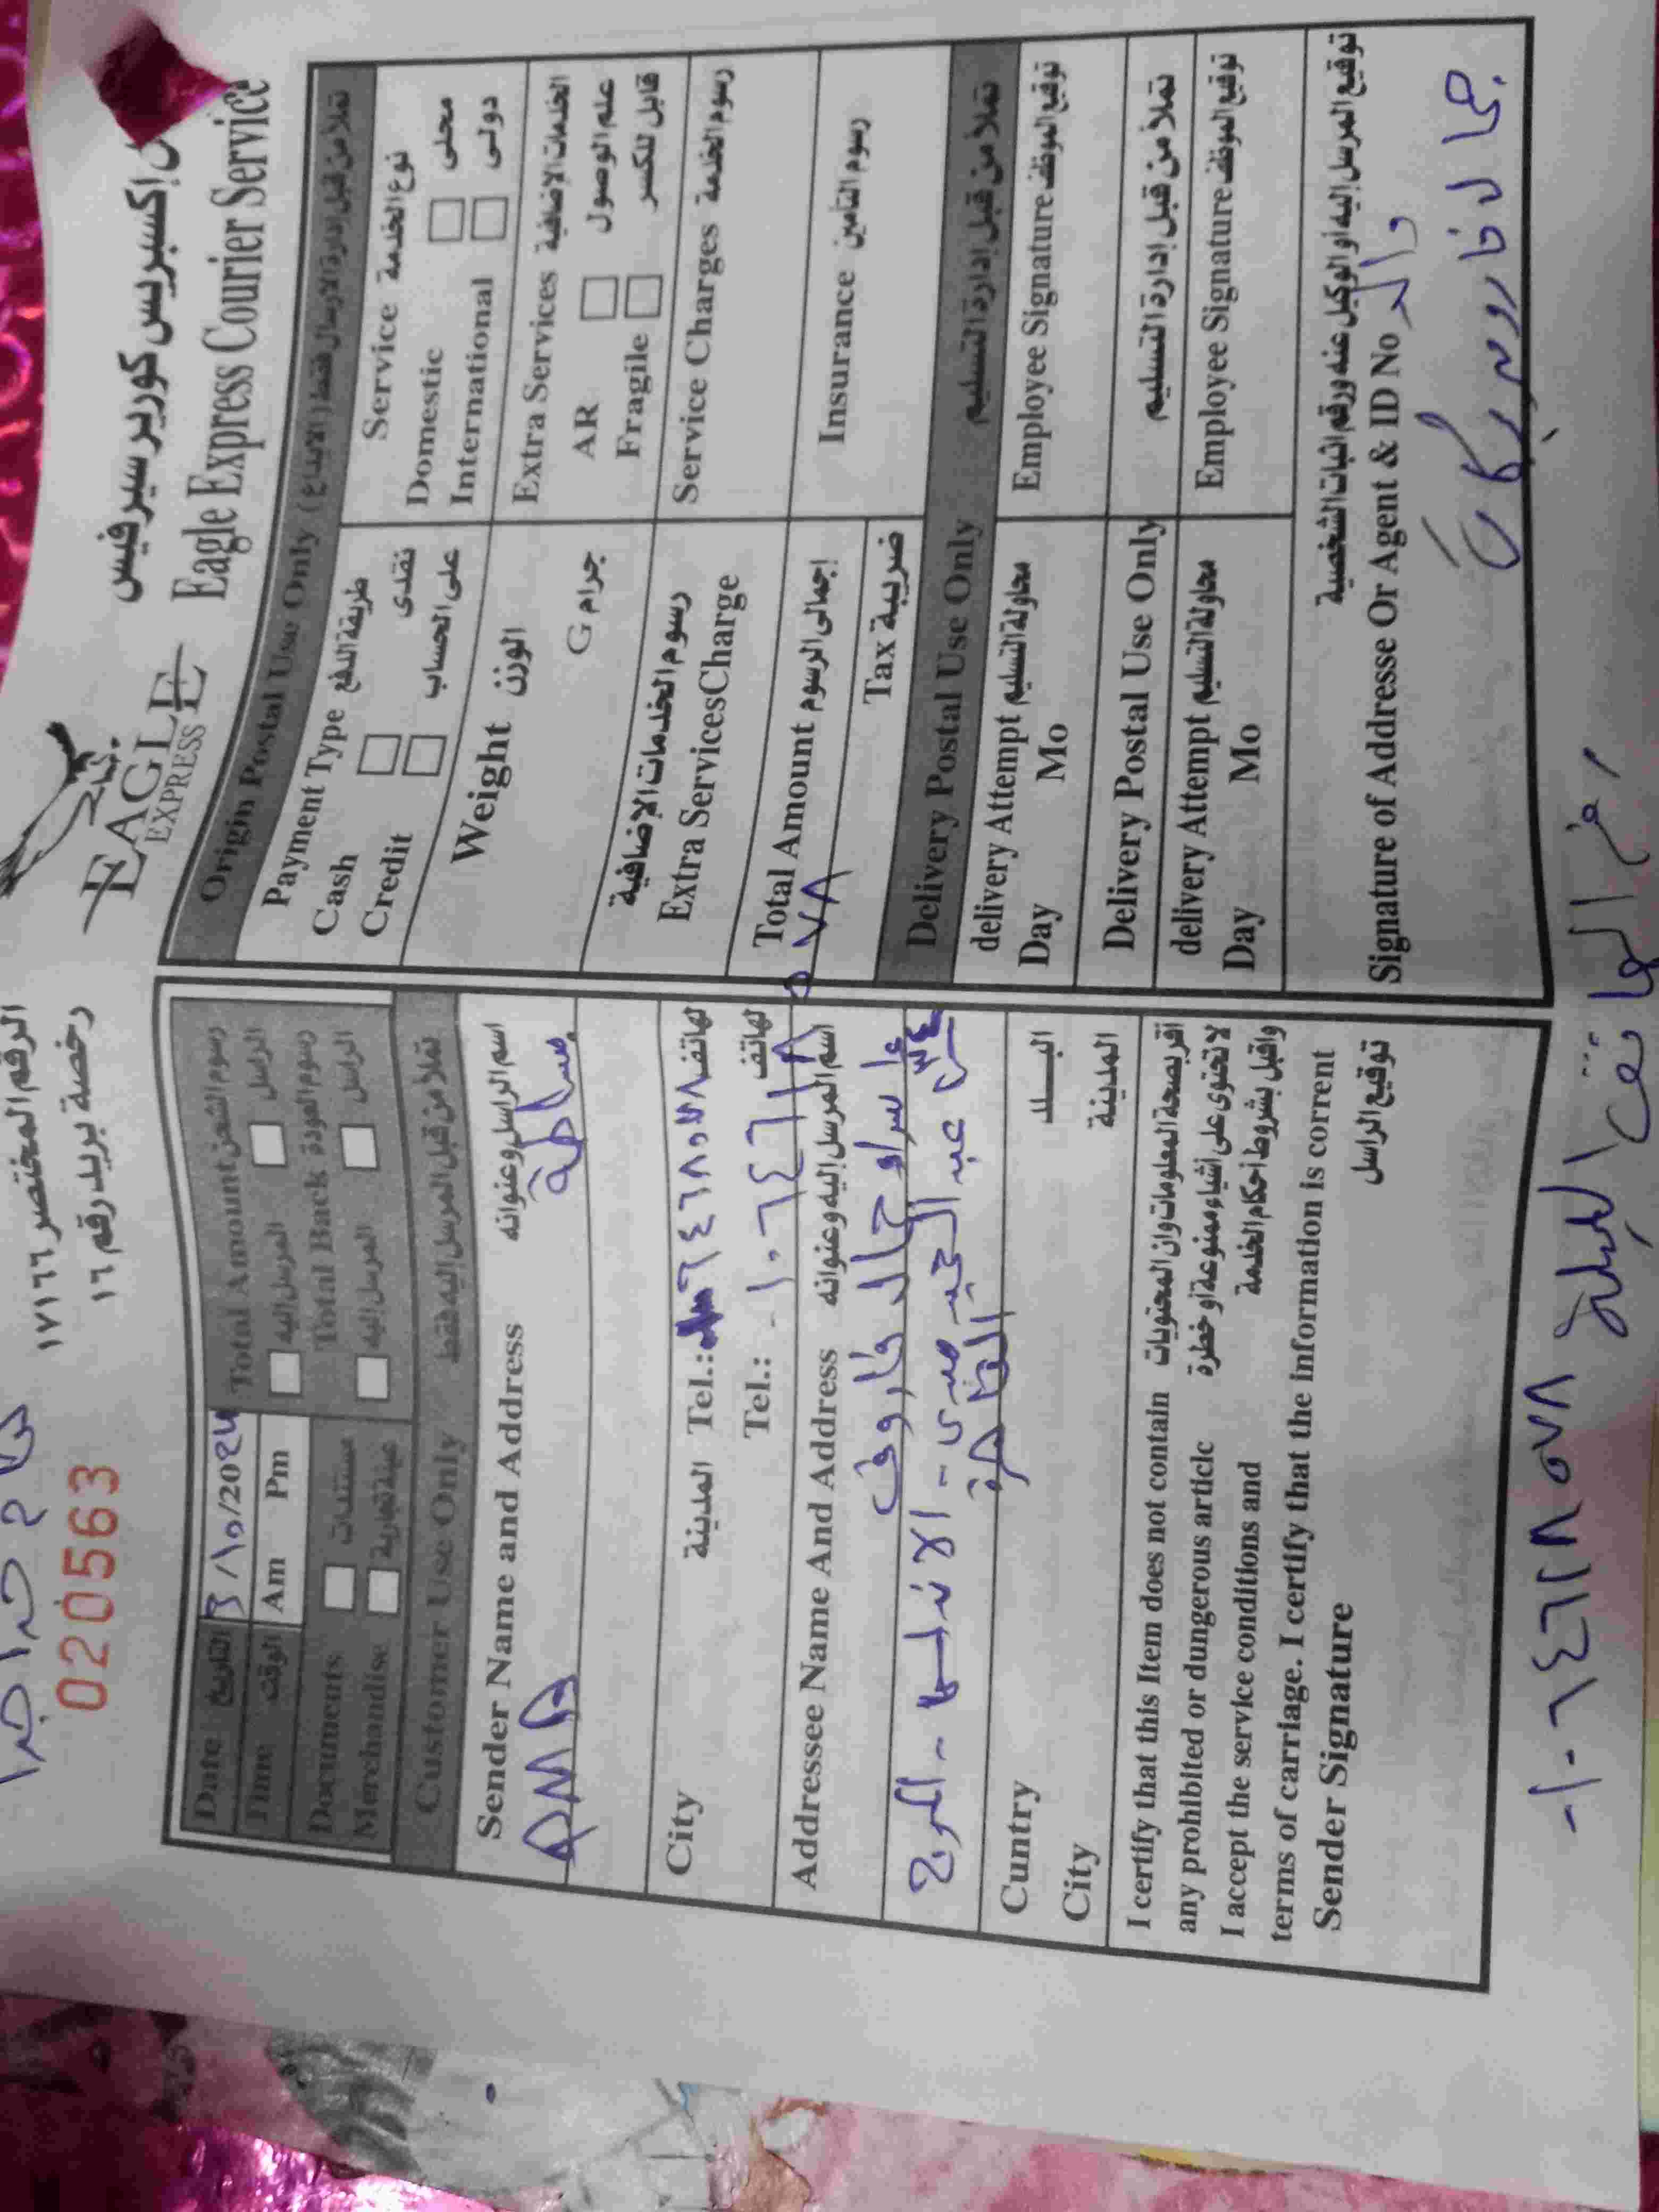 الرقم المختصر ١٧١٦٦
رخصة بريد رقم ١٦
020563
EAGLE
EXPRESS
إكسبريس كوريرسيرفيس
Eagle Express Courier Service
Date التاريخ 3/10/2024
Time الوقت Am Pm
Documents مستندات
Merchandise عينة تجارية
Total Amount رسوم الشحن
المرسل إليه الراسل
Total Back رسوم العودة
المرسل إليه الراسل
Customer Use Only تملأ من قبل المرسل إليه فقط
Sender Name and Address اسم الراسل وعنوانه
City المدينة Tel.: لهاتف
Tel.: لهاتف
Addressee Name And Address اسم المرسل إليه وعنوانه
إسراء جمال فاروق
ش عبد الحميد
القاهرة
Cuntry البـــلد
City المدينة
I certify that this Item does not contain
any prohibited or dungerous article
I accept the service conditions and
terms of carriage. I certify that the information is current
أقر بصحة المعلومات وان المحتويات
لا تحتوى على أشياء ممنوعة أو خطرة
واقبل بشروط أحكام الخدمة
Sender Signature توقيع الراسل
Origin Postal Use Only تملأ من قبل إدارة الارسال فقط (الايداع)
Payment Type طريقة الدفع
Cash نقدى
Credit على الحساب
Service نوع الخدمة
Domestic محلى
International دولى
Weight الوزن
G جرام
Extra Services الخدمات الإضافية
AR علم الوصول
Fragile قابل للكسر
رسوم الخدمات الإضافية
Extra ServicesCharge
Service Charges رسوم الخدمة
Total Amount اجمالى الرسوم
Tax ضريبة
Insurance رسوم التأمين
Delivery Postal Use Only تملأ من قبل إدارة التسليم
delivery Attempt محاولة التسليم
Day Mo
Employee Signature توقيع الموظف
Delivery Postal Use Only تملأ من قبل إدارة التسليم
delivery Attempt محاولة التسليم
Day Mo
Employee Signature توقيع الموظف
توقيع المرسل إليه أو الوكيل عنه ورقم اثبات الشخصية
Signature of Addresse Or Agent & ID No
والد
جمال فاروق